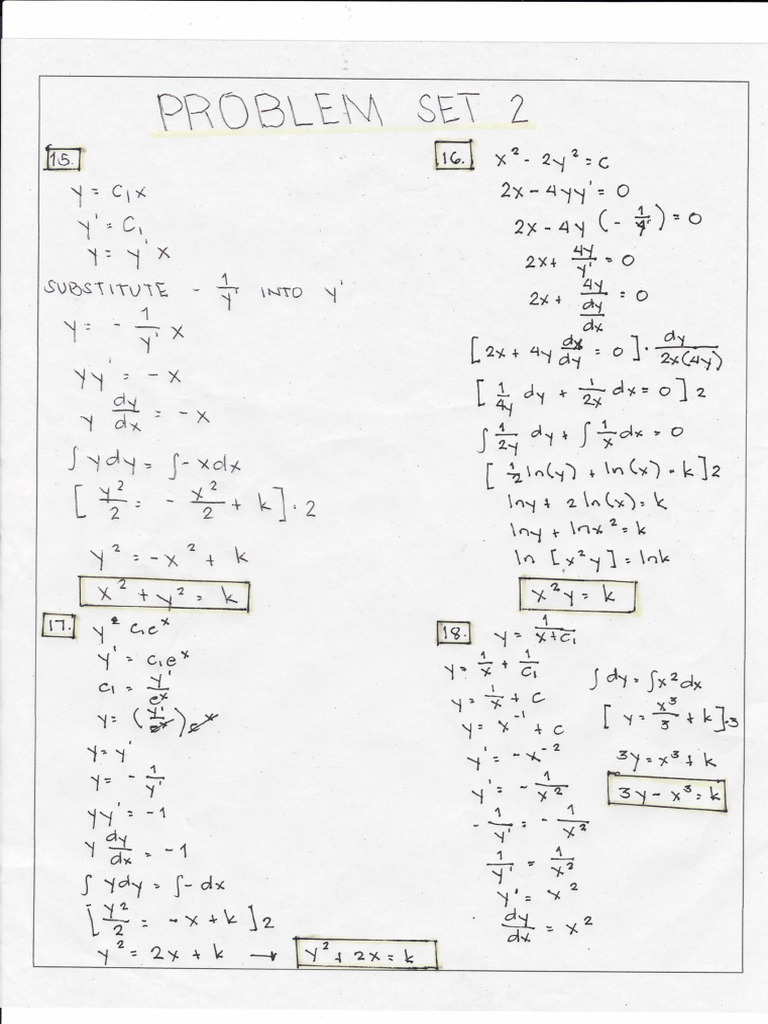 PROBLEM SET 2
15.
y = C₁x
y' = C₁
y = y' x
SUBSTITUTE - 1/y' INTO y'
y = - 1/y' x
yy' = -x
y dy/dx = -x
∫ydy = ∫-xdx
[ y²/2 = - x²/2 + k ] · 2
y² = -x² + k
x² + y² = k
16. x² - 2y² = c
2x - 4yy' = 0
2x - 4y (- 1/y') = 0
2x + 4y/y' = 0
2x + 4y/(dy/dx) = 0
[ 2x + 4y dx/dy = 0 ] · dy/2x(4y)
[ 1/4y dy + 1/2x dx = 0 ] 2
∫ 1/2y dy + ∫ 1/x dx = 0
[ 1/2 ln(y) + ln(x) = k ] 2
lny + 2 ln(x) = k
lny + lnx² = k
ln [x²y] = lnk
x²y = k
17. y² c₁eˣ
y' = c₁eˣ
c₁ = y'/eˣ
y = (y'/eˣ) eˣ
y = y'
y = - 1/y'
yy' = -1
y dy/dx = -1
∫ ydy = ∫-dx
[ y²/2 = -x + k ] 2
y² = 2x + k → y² + 2x = k
18. y = 1/x+c₁
y = 1/x + 1/c₁
y = 1/x + c
y = x⁻¹ + c
y' = -x⁻²
y' = - 1/x²
- 1/y' = - 1/x²
1/y' = 1/x²
y' = x²
dy/dx = x²
∫ dy = ∫x² dx
[ y = x³/3 + k ] · 3
3y = x³ + k
3y - x³ = k